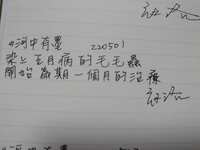 #河中有墨 220501
染上五月病的毛毛蟲
開始為期一個月的治療